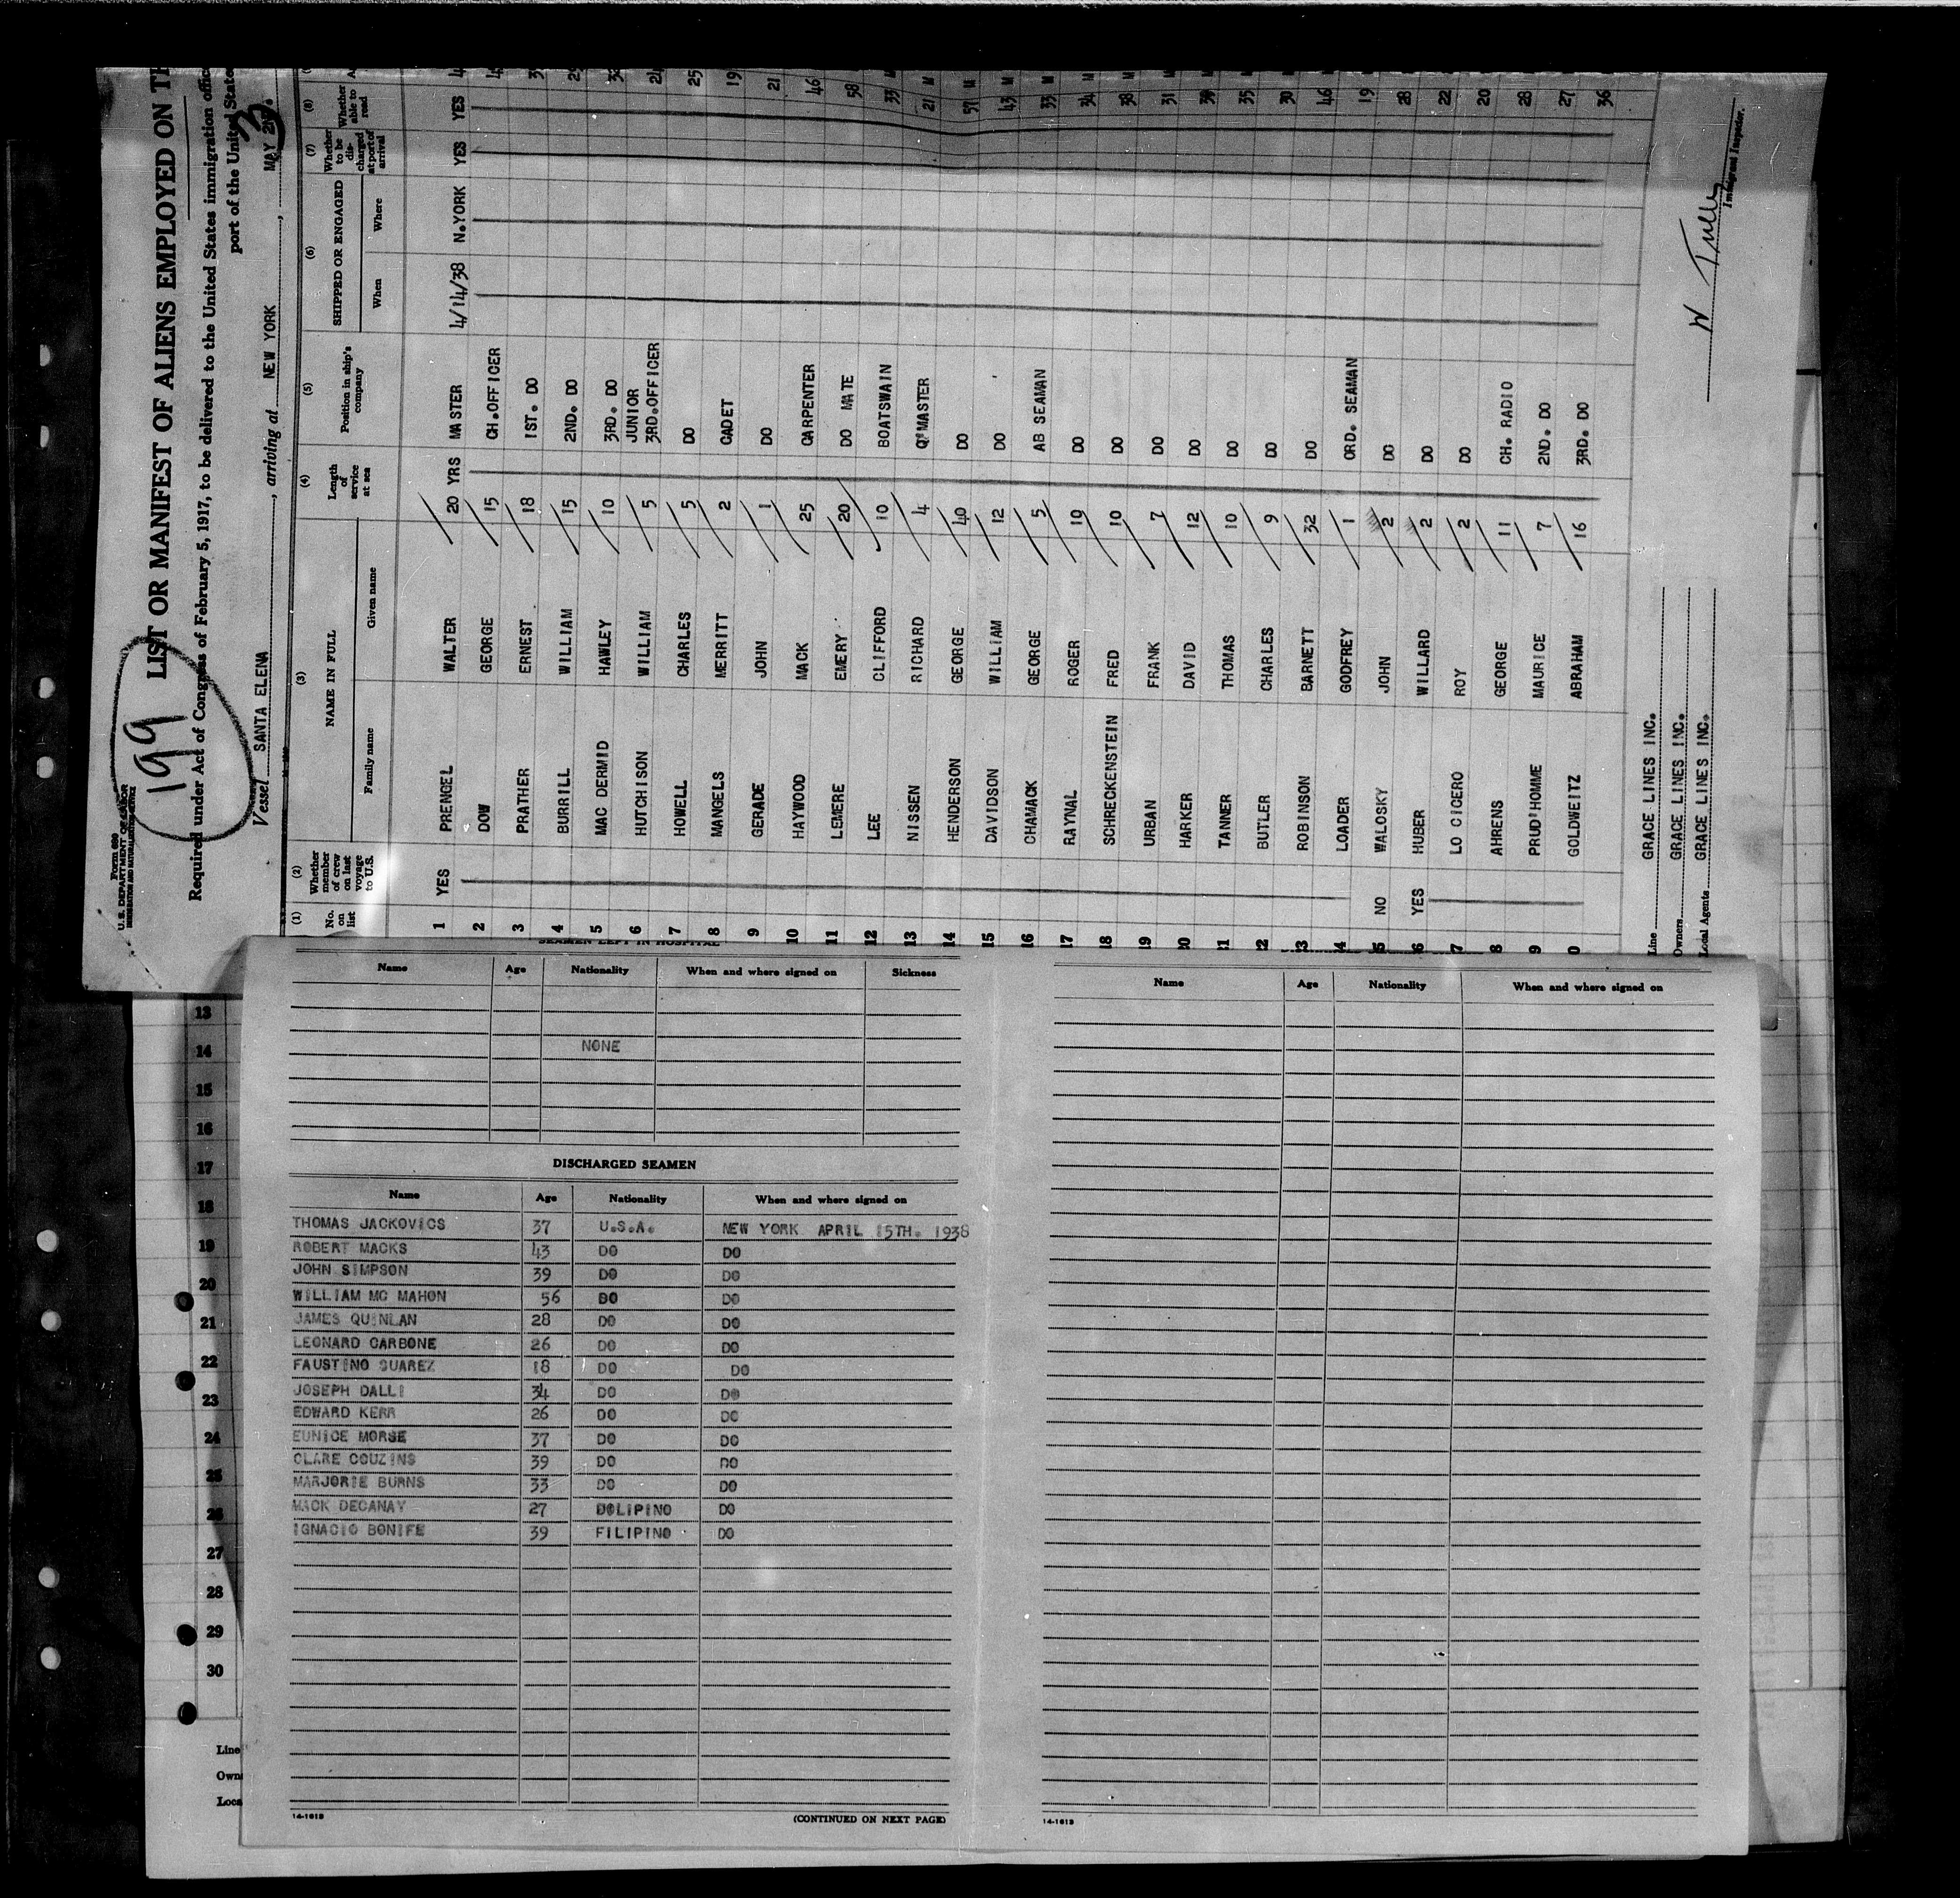 Form 689
U. S. DEPARTMENT OF LABOR
IMMIGRATION AND NATURALIZATION SERVICE
199
LIST OR MANIFEST OF ALIENS EMPLOYED ON TH
Required under Act of Congress of February 5, 1917, to be delivered to the United States immigration offic
port of the United State
Vessel SANTA ELENA, arriving at NEW YORK, MAY 2ND.
3
(1) (2) (3) (4) (5) (6) (7) (8)
No. on list Whether member of crew on last voyage to U.S. NAME IN FULL Family name Given name Length of service at sea Position in ship's company SHIPPED OR ENGAGED When Where Whether to be discharged at port of arrival Whether able to read A
1 YES PRENGEL WALTER 20 YRS MASTER 4/14/38 N.YORK YES YES 4
2 DOW GEORGE 15 CH.OFFICER 4
3 PRATHER ERNEST 18 1ST. DO 3
4 BURRILL WILLIAM 15 2ND. DO 29
5 MAC DERMID HAWLEY 10 3RD. DO 32
6 HUTCHISON WILLIAM 5 JUNIOR 3RD.OFFICER 24
7 HOWELL CHARLES 5 DO 25
8 MANGELS MERRITT 2 CADET 19
9 GERADE JOHN 1 DO 21
10 HAYWOOD MACK 25 CARPENTER 46
11 LEMERE EMERY 20 DO MATE 58
12 LEE CLIFFORD 10 BOATSWAIN 33 M
13 NISSEN RICHARD 4 Q'MASTER 21 M
14 HENDERSON GEORGE 40 DO 57 M
15 DAVIDSON WILLIAM 12 DO 43 M
16 CHAMACK GEORGE 5 AB SEAMAN 33 M
17 RAYNAL ROGER 10 DO 34 M
18 SCHRECKENSTEIN FRED 10 DO 38 M
19 URBAN FRANK 7 DO 31 M
20 HARKER DAVID 12 DO 39 M
21 TANNER THOMAS 10 DO 35 M
22 BUTLER CHARLES 9 DO 30 M
23 ROBINSON BARNETT 32 DO 46 M
4 LOADER GODFREY 1 ORD. SEAMAN 19 M
5 NO WALOSKY JOHN 2 DO 28 M
6 YES HUBER WILLARD 2 DO 22 M
7 LO CICERO ROY 2 DO 20 M
8 AHRENS GEORGE 11 CH. RADIO 28 M
9 PRUD'HOMME MAURICE 7 2ND. DO 27 M
0 GOLDWEITZ ABRAHAM 16 3RD. DO 36
Line GRACE LINES INC.
Owners GRACE LINES INC.
Local Agents GRACE LINES INC.
Immigrant Inspector.
SEAMEN LEFT IN HOSPITAL
Name Age Nationality When and where signed on Sickness
NONE
DISCHARGED SEAMEN
Name Age Nationality When and where signed on
THOMAS JACKOVICS 37 U.S.A. NEW YORK APRIL 15TH. 1938
ROBERT MACKS 43 DO DO
JOHN SIMPSON 39 DO DO
WILLIAM MC MAHON 56 DO DO
JAMES QUINLAN 28 DO DO
LEONARD CARBONE 26 DO DO
FAUSTINO SUAREZ 18 DO DO
JOSEPH DALLI 34 DO DO
EDWARD KERR 26 DO DO
EUNICE MORSE 37 DO DO
CLARE COUZINS 39 DO DO
MARJORIE BURNS 33 DO DO
MACK DECANAY 27 DOLIPINO DO
IGNACIO BONIFE 39 FILIPINO DO
14-1613
(CONTINUED ON NEXT PAGE)
Name Age Nationality When and where signed on
14-1613
13
14
15
16
17
18
19
20
21
22
23
24
25
26
27
28
29
30
Line
Own
Loca